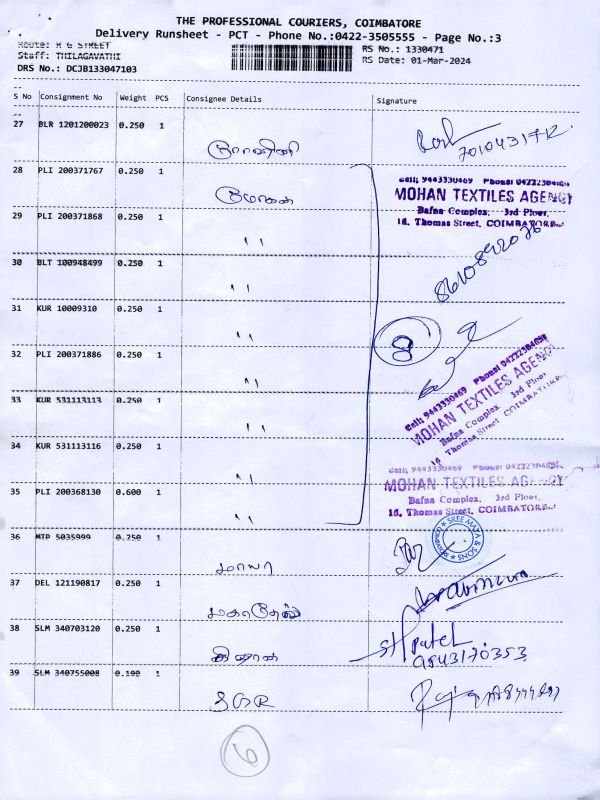 THE PROFESSIONAL COURIERS, COIMBATORE
Delivery Runsheet - PCT - Phone No.:0422-3505555 - Page No.:3
Route: R G STREET
Staff: THILAGAVATHI
DRS No.: DCJB133047103
RS No.: 1330471
RS Date: 01-Mar-2024
S No Consignment No Weight PCS Consignee Details Signature
27 BLR 1201200023 0.250 1
28 PLI 200371767 0.250 1
MOHAN TEXTILES AGENCY
Bafna Complex, 3rd Floor,
16, Thomas Street, COIMBATORE
29 PLI 200371868 0.250 1 ''
30 BLT 100948499 0.250 1 ''
31 KUR 10009310 0.250 1 ''
8
32 PLI 200371886 0.250 1 ''
Cell: 9443330469 Phone: 04222304696
MOHAN TEXTILES AGENCY
Bafna Complex, 3rd Floor
16 Thomas Street, COIMBATORE
33 KUR 531113113 0.250 1 ''
34 KUR 531113116 0.250 1 ''
MOHAN TEXTILES AGENCY
Bafna Complex, 3rd Floor,
16, Thomas Street, COIMBATORE
35 PLI 200368130 0.600 1 ''
SREE MAYA & SONS
36 MTP 5035999 0.250 1 மாயா
37 DEL 121190817 0.250 1
38 SLM 340703120 0.250 1
Patel
9843170353
39 SLM 340755008 0.190 1 SGR
6